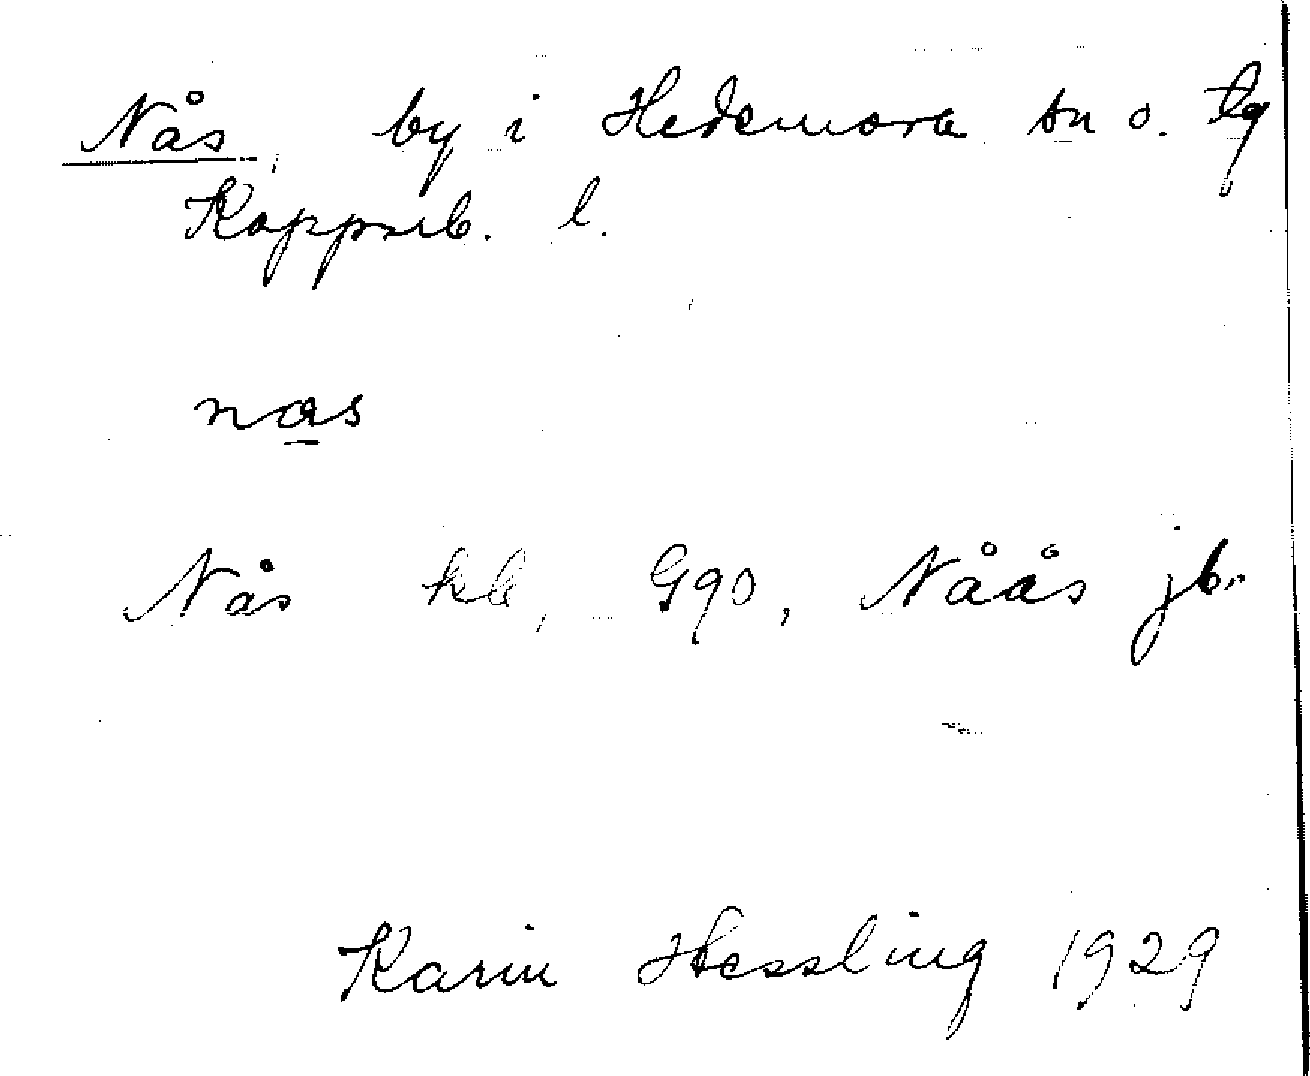 Nås, by i Hedemora sn o. tg
Kopparb. l.
nas
Nås kb, Gqo, Nåås jb.
Karin Hessling 1929